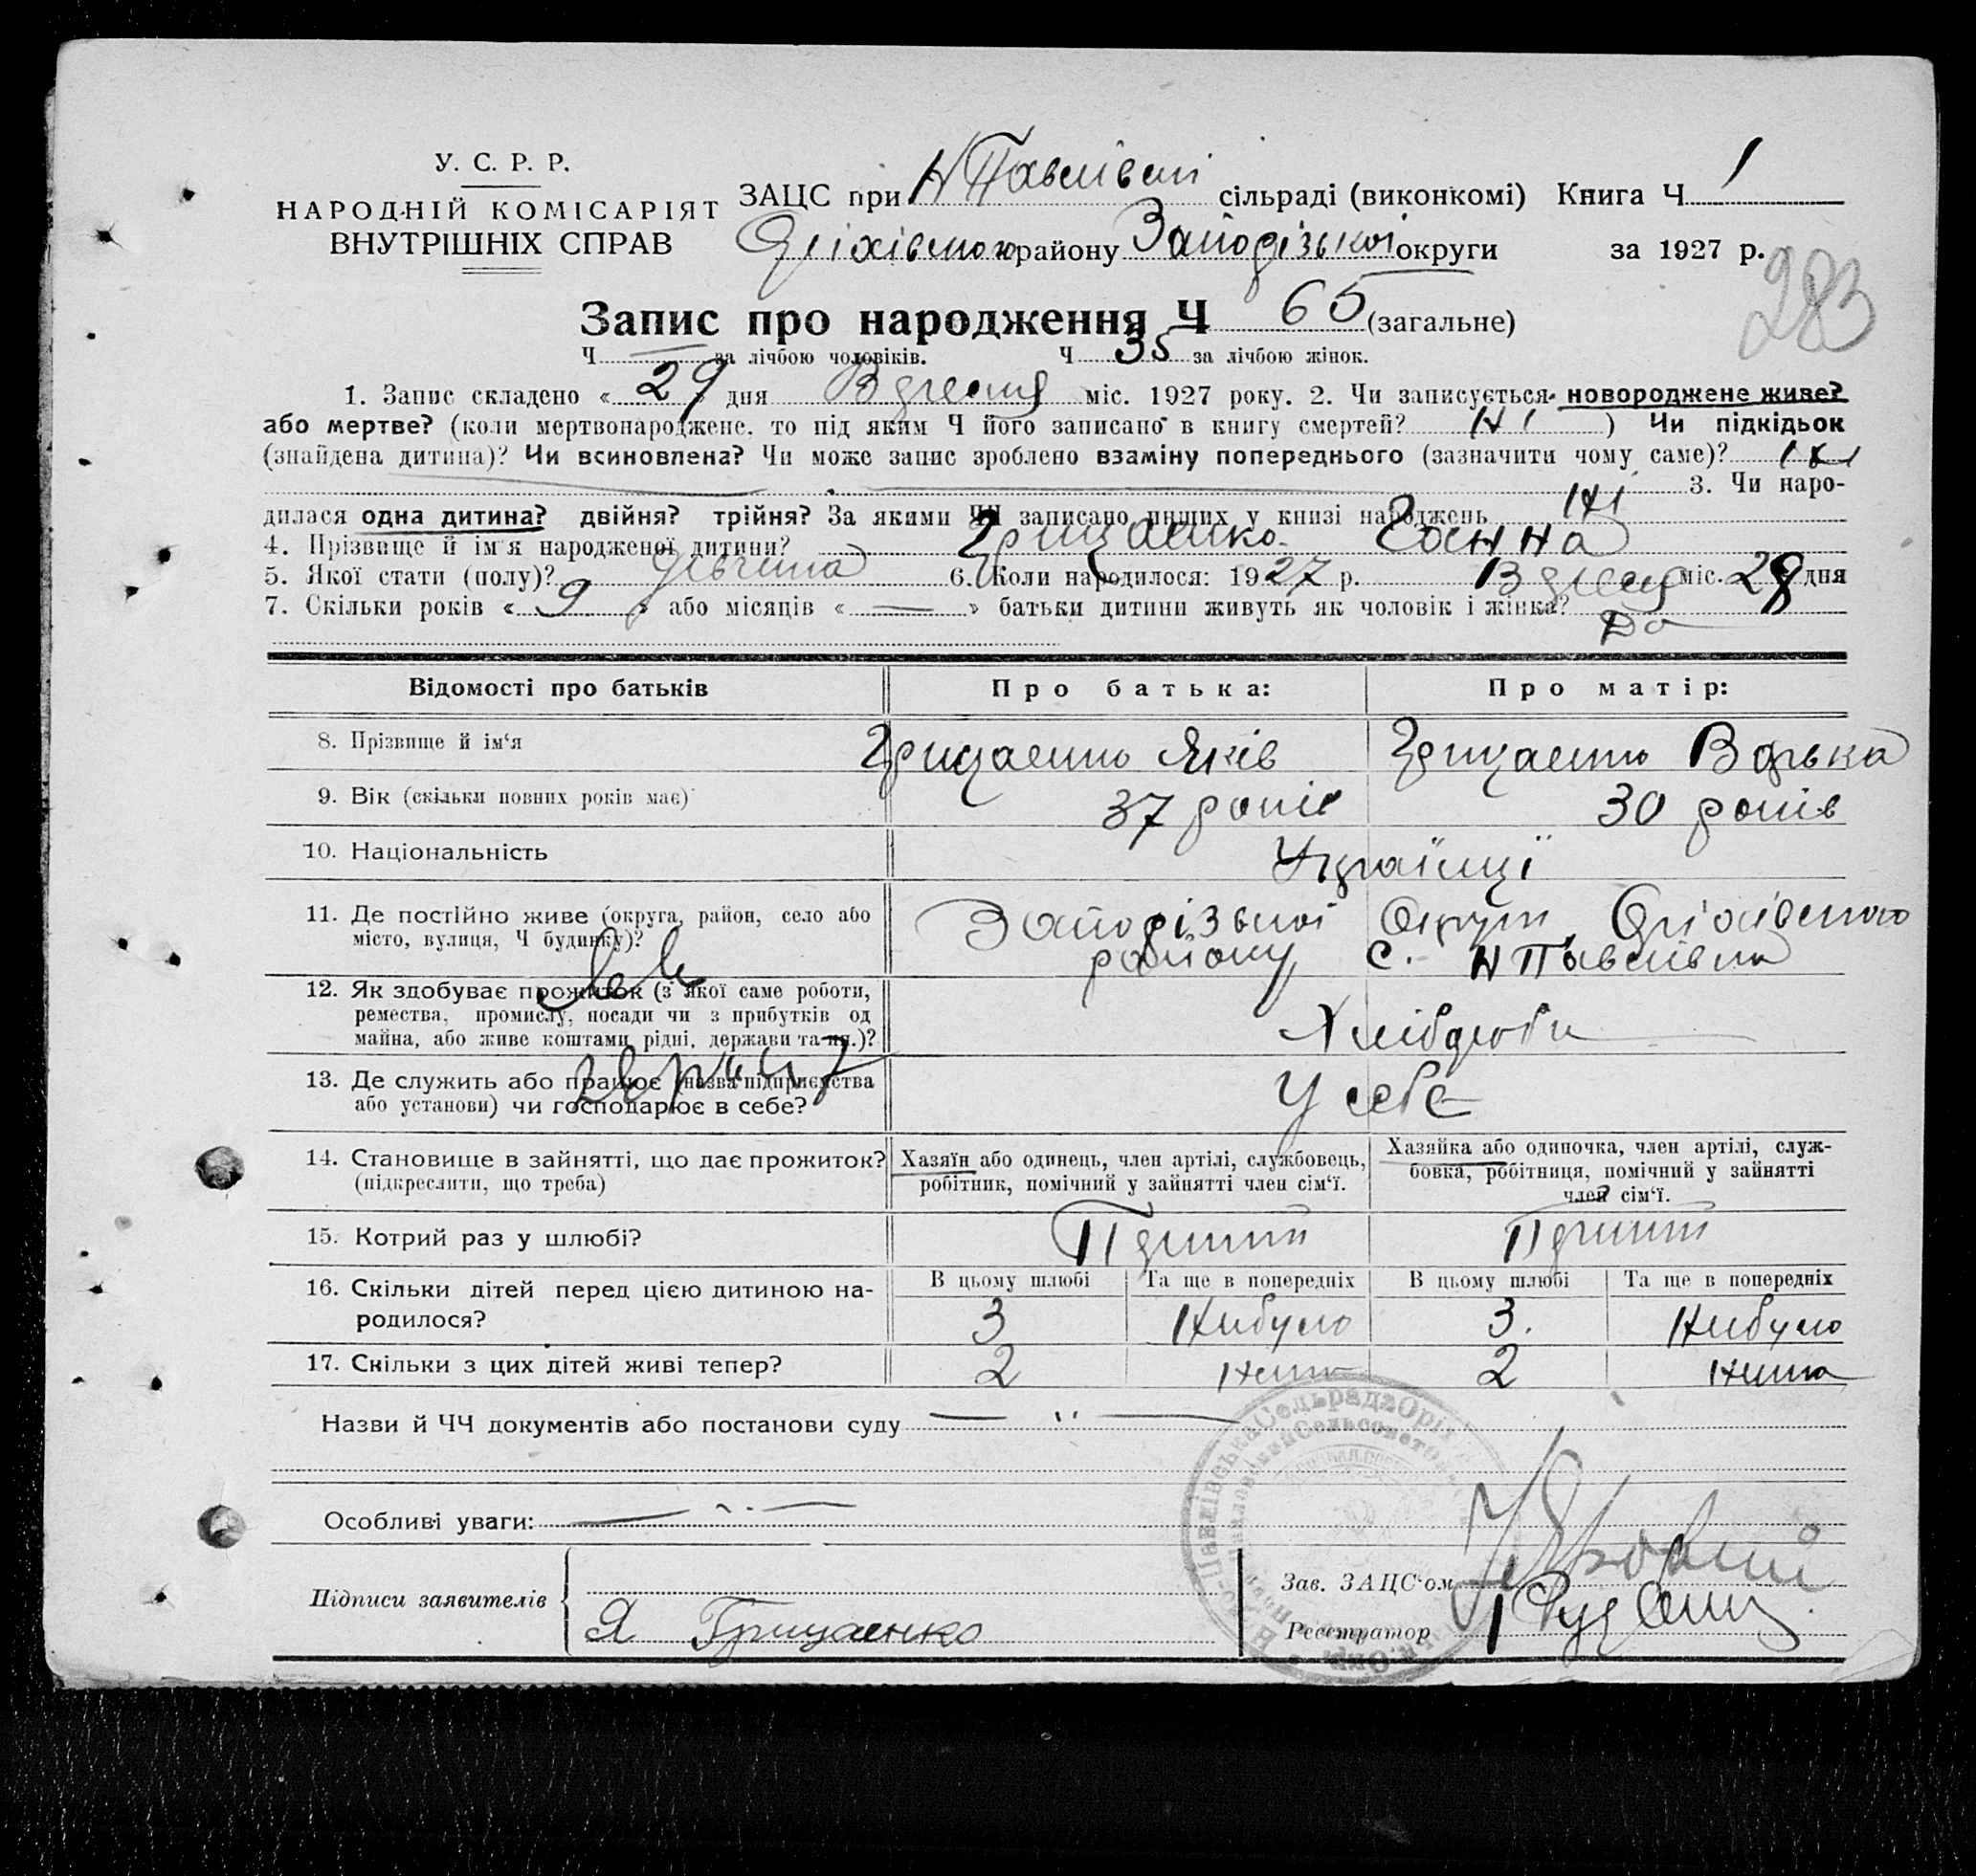 У. С. Р. Р.
НАРОДНІЙ КОМІСАРІЯТ
ВНУТРІШНІХ СПРАВ
ЗАЦС при Н Павлівскі сільраді (виконкомі) Книга Ч 1
Оріхівського району Запорізької округи за 1927 р.
283
Запис про народження Ч 65 (загальне)
Ч — за лічбою чоловіків. Ч 35 за лічбою жінок.
1. Запис складено « 29 » дня Вересня міс. 1927 року. 2. Чи записується новороджене живе?
або мертве? (коли мертвонароджене, то під яким Ч його записано в книгу смертей? Ні ) Чи підкідьок
(знайдена дитина)? Чи всиновлена? Чи може запис зроблено взаміну попереднього (зазначити чому саме)? Ні
3. Чи наро-
дилася одна дитина? двійня? трійня? За якими ЧЧ записано инших у книзі народжень Ні
4. Прізвище й ім'я народженої дитини? Грицаенко Ганна
5. Якої стати (полу)? Дівчина 6. Коли народилося: 1927 р. Вересня міс. 28 дня
7. Скільки років « 9 » або місяців « — » батьки дитини живуть як чоловік і жінка?
Відомості про батьків Про батька: Про матір:
8. Прізвище й ім'я Грицаенко Яків Грицаенко
9. Вік (скільки повних років має) 37 років 30 років
10. Національність Українці
11. Де постійно живе (округа, район, село або Запорізької Округи, Оріхівського
місто, вулиця, Ч будинку)? району, с. Н Павлівка
12. Як здобуває прожиток (з якої саме роботи,
ремества, промислу, посади чи з прибутків од Хлібороби
майна, або живе коштами рідні, держави та ин.)?
13. Де служить або працює (назва підприємства У себе
або установи) чи господарює в себе?
14. Становище в зайнятті, що дає прожиток? Хазяїн або одинець, член артілі, службовець, Хазяйка або одиночка, член артілі, служ-
(підкреслити, що треба) робітник, помічний у зайнятті член сім'ї. бовка, робітниця, помічний у зайнятті
член сім'ї.
15. Котрий раз у шлюбі?
16. Скільки дітей перед цією дитиною на- В цьому шлюбі Та ще в попередніх В цьому шлюбі Та ще в попередніх
родилося? 3 Небуло 3. Небуло
17. Скільки з цих дітей живі тепер? 2 нема 2 нема
Назви й ЧЧ документів або постанови суду — " —
Особливі уваги: — " —
Підписи заявителів Зав. ЗАЦС-ом
Я Грицаенко Реєстратор